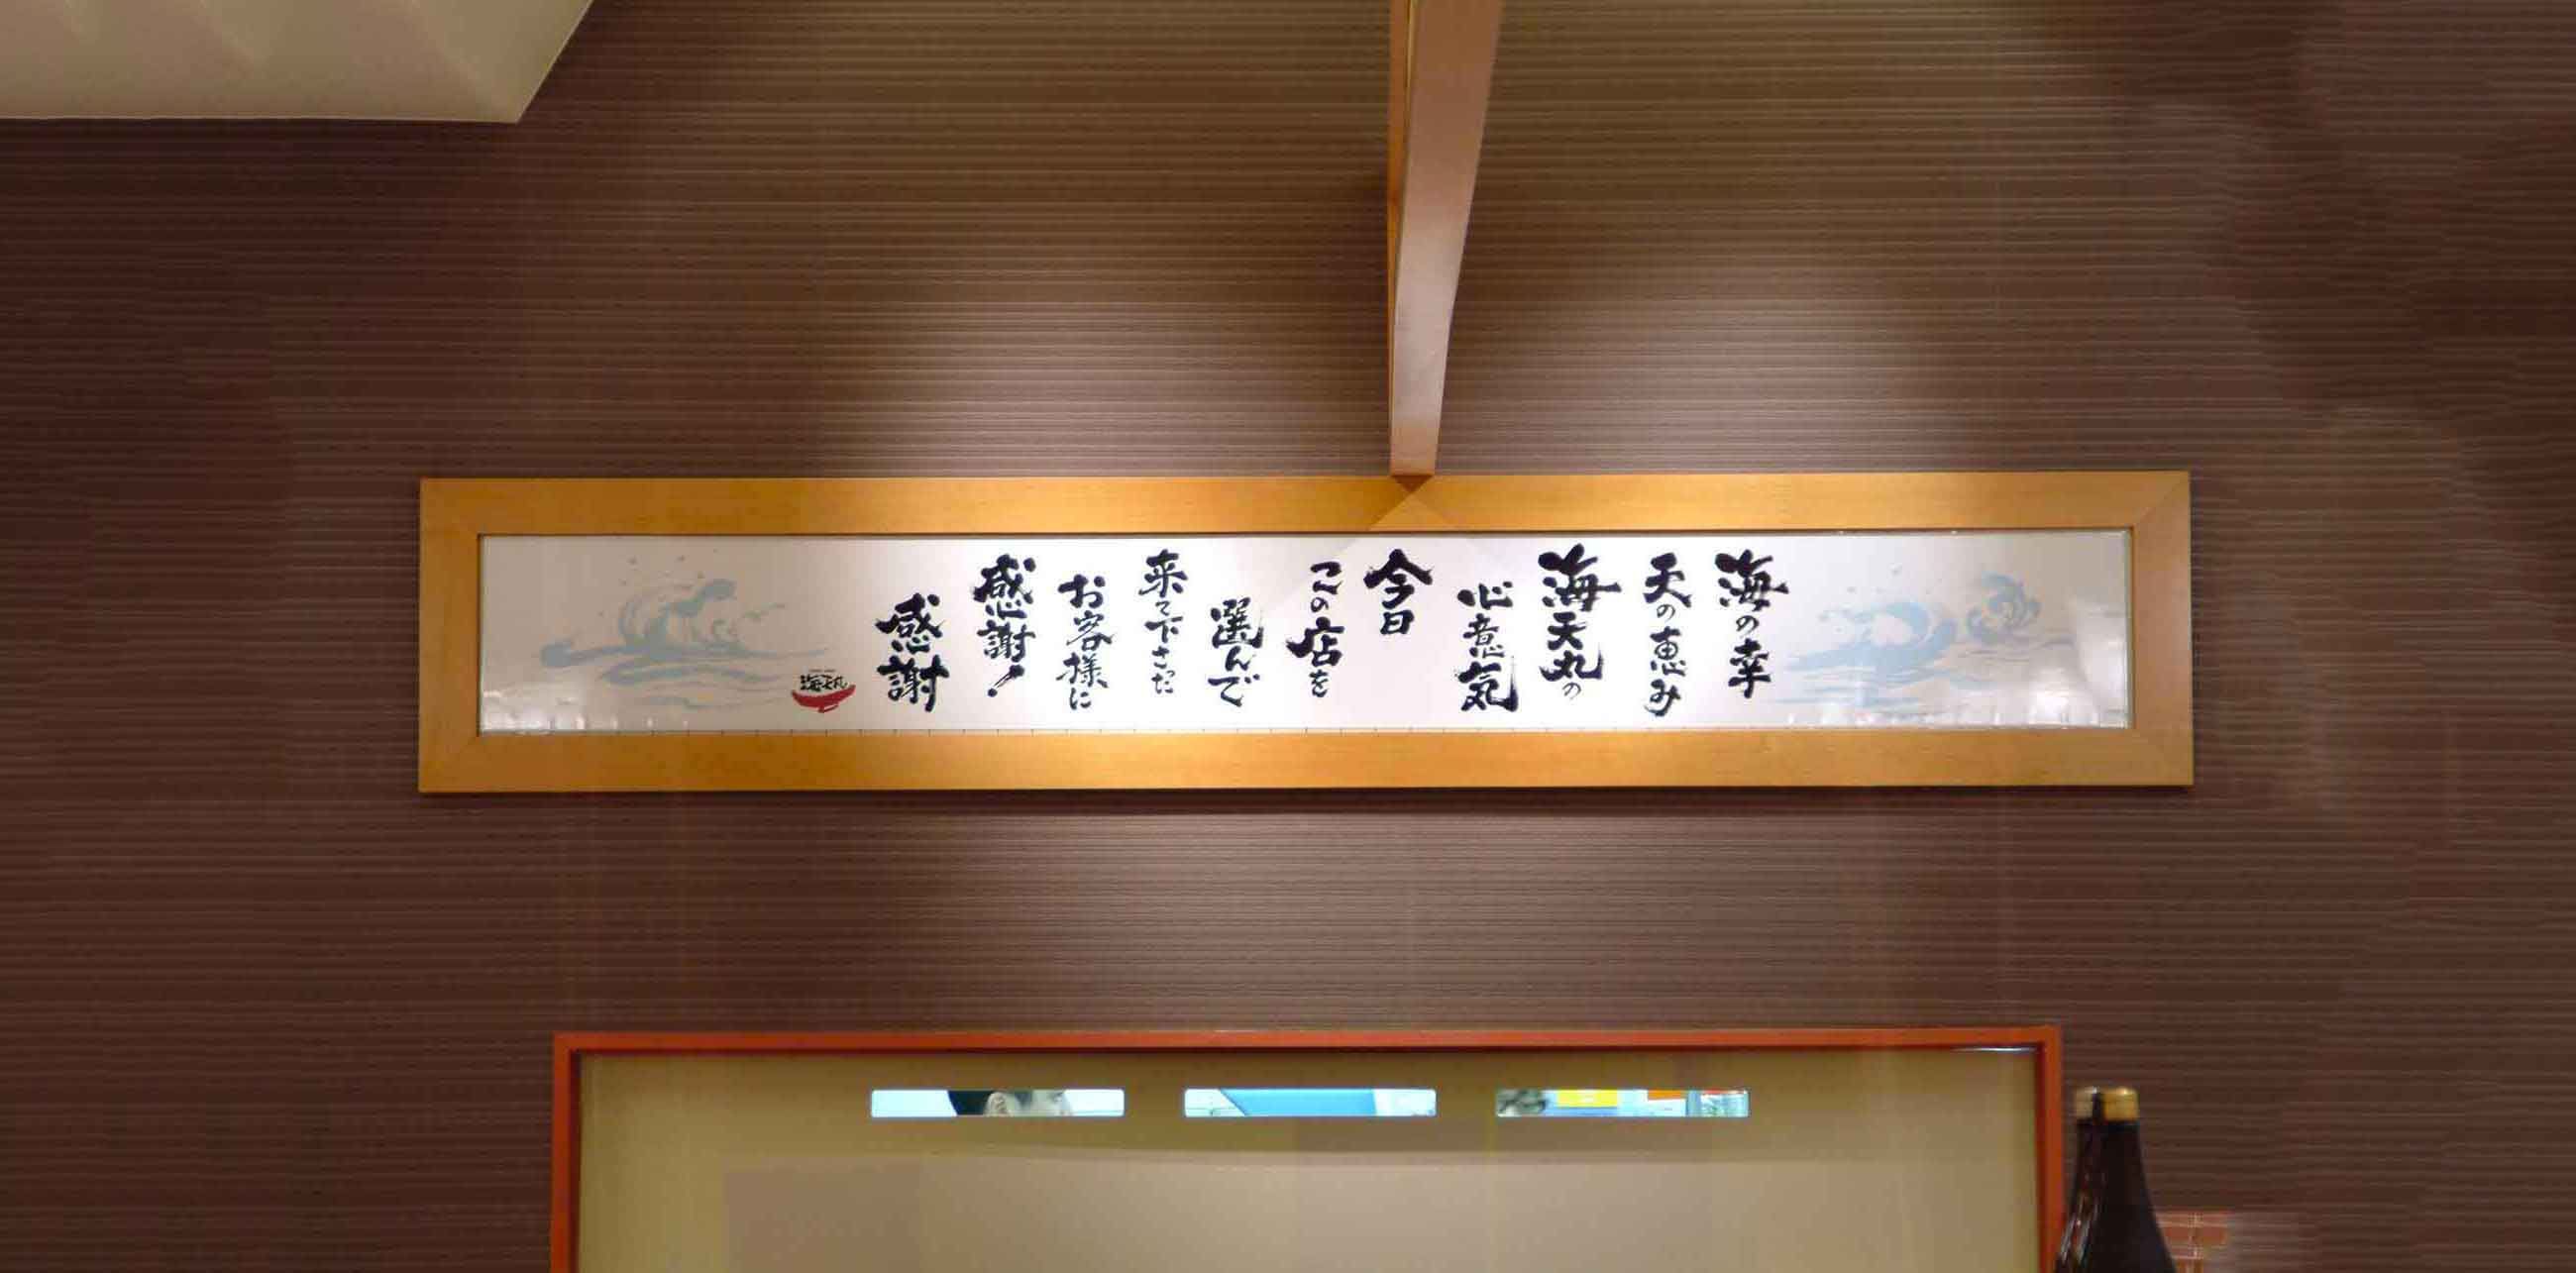 海の幸
天の恵み
海天丸の
心意気
今日
この店を
選んで
来て下さった
お客様に
感謝!
感謝
海天丸